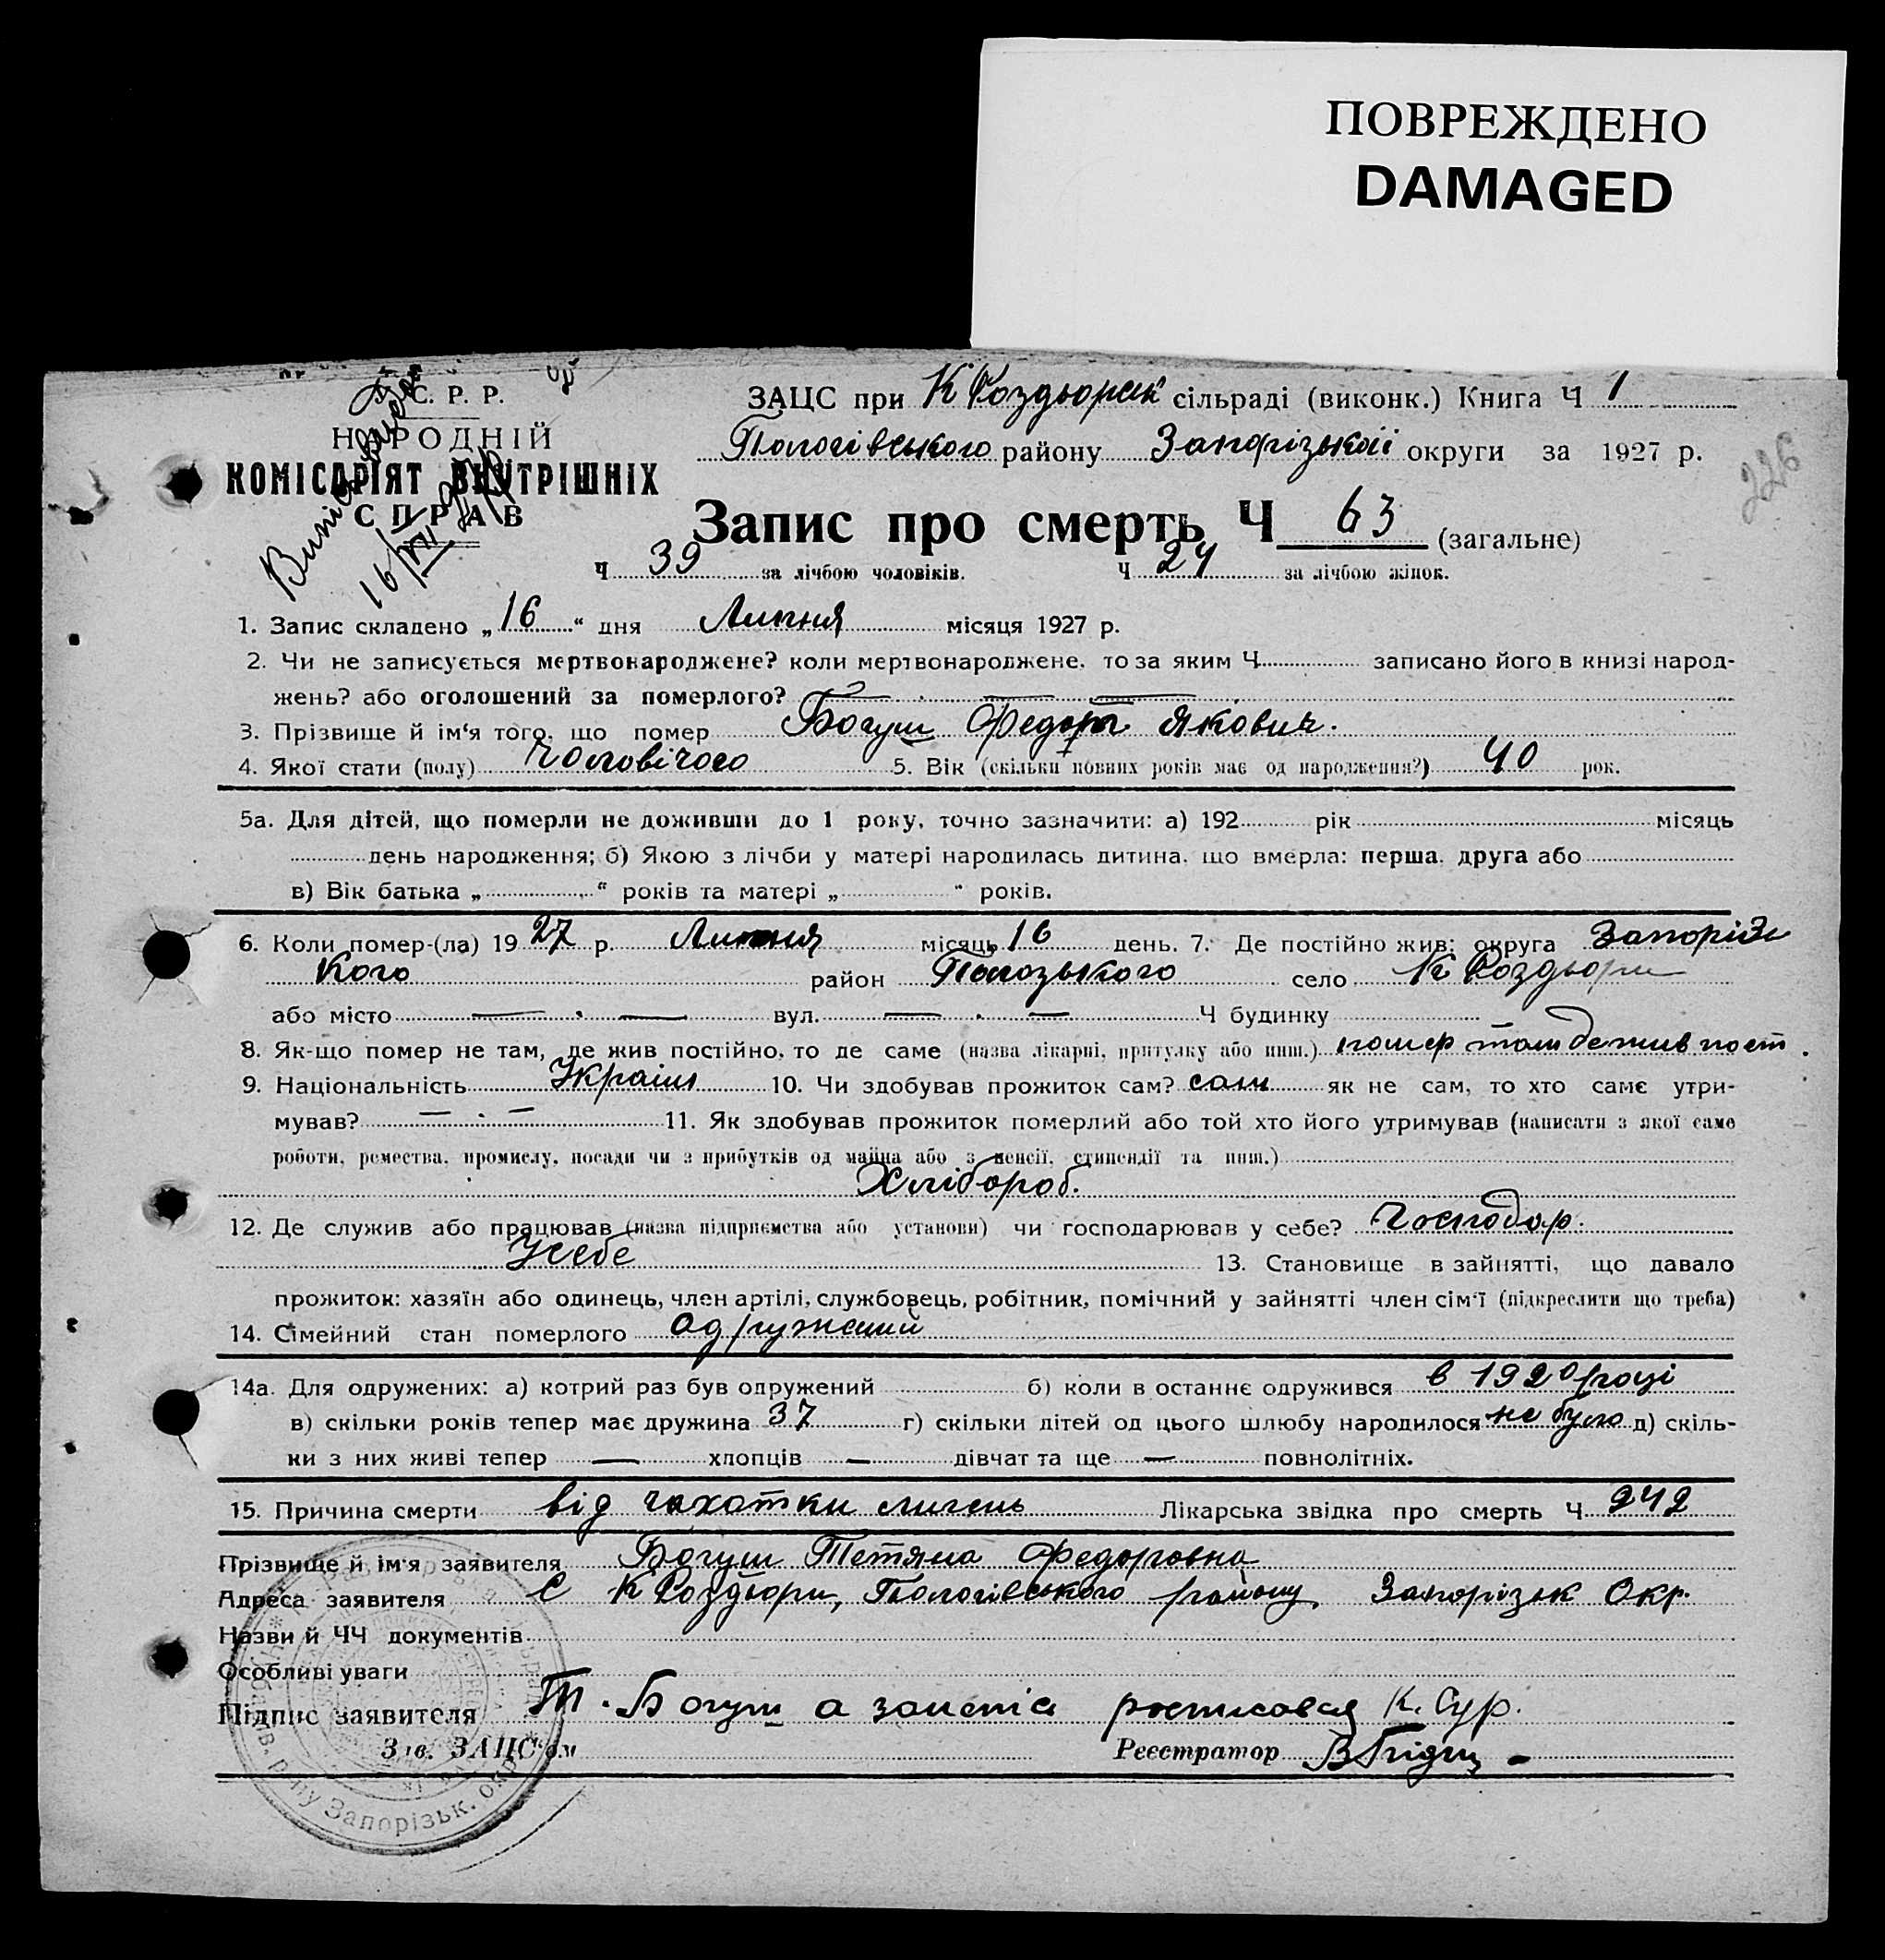 ПОВРЕЖДЕНО
DAMAGED
С. Р. Р.
НАРОДНІЙ
КОМІСАРІЯТ ВНУТРІШНІХ
СПРАВ
16/VII
226
ЗАЦС при К Роздорськ сільраді (виконк.) Книга Ч 1
Пологівського району Запорізької округи за 1927 р.
Запис про смерть Ч 63 (загальне)
Ч 39 за лічбою чоловіків. Ч 24 за лічбою жінок.
1. Запис складено „16“ дня Липня місяця 1927 р.
2. Чи не записується мертвонароджене? коли мертвонароджене, то за яким Ч записано його в книзі народ-
жень? або оголошений за померлого? — . — —
3. Прізвище й ім‘я того, що помер Богуш Федор Якович.
4. Якої стати (полу) Чоловічого 5. Вік (скільки повних років має од народження?) 40 рок.
5а. Для дітей, що померли не доживши до 1 року, точно зазначити: а) 192 рік місяць
день народження; б) Якою з лічби у матері народилась дитина, що вмерла: перша, друга або
в) Вік батька „ “ років та матері „ “ років.
6. Коли помер-(ла) 1927 р. Липня місяць 16 день. 7. Де постійно жив: округа Запорізь
кого район Пологського село К Роздори
або місто — . — вул. — . — Ч будинку
8. Як-що помер не там, де жив постійно, то де саме (назва лікарні, притулку або инш.) помер там де жив пост.
9. Національність Україн 10. Чи здобував прожиток сам? сам як не сам, то хто саме утри-
мував? — . — 11. Як здобував прожиток померлий або той хто його утримував (написати з якої саме
роботи, ремества, промислу, посади чи з прибутків од майна або з пенсії, стипендії та инш.)
Хлібороб.
12. Де служив або працював (назва підприємства або установи) чи господарював у себе? Господар.
У себе 13. Становище в зайнятті, що давало
прожиток: хазяїн або одинець, член артілі, службовець, робітник, помічний у зайнятті член сім‘ї (підкреслити що треба)
14. Сімейний стан померлого одружений
14а. Для одружених: а) котрий раз був одружений б) коли в останнє одружився в 1920 році
в) скільки років тепер має дружина 37 г) скільки дітей од цього шлюбу народилося не було д) скіль-
ки з них живі тепер — хлопців — дівчат та ще — повнолітніх.
15. Причина смерти від чахотки лигень Лікарська звідка про смерть Ч 242
Прізвище й ім‘я заявителя Богуш Тетяна Федоровна
Адреса заявителя С К Роздори, Пологівського району, Запорізьк Окр.
Назви й ЧЧ документів
Особливі уваги
Підпис заявителя Т. Богуш а замість росписовся К. Сур.
Зав. ЗАЦС‘ом Реєстратор
р-ну Запорізьк. окр.